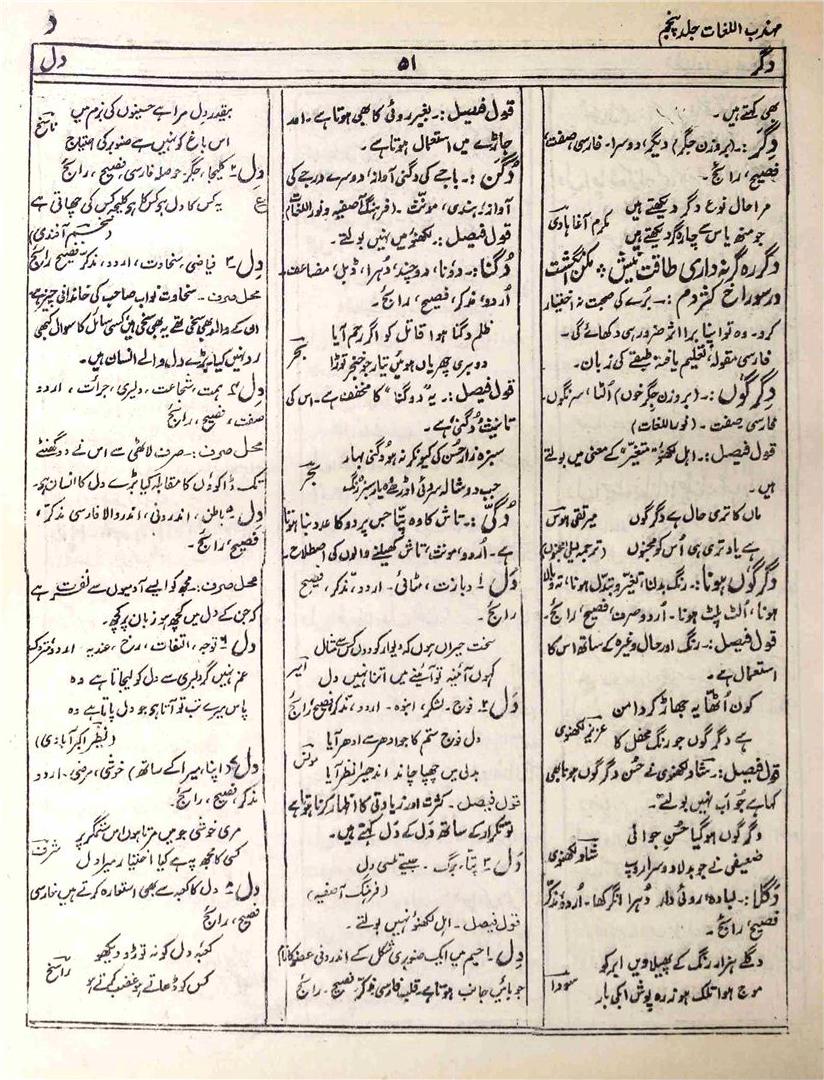 مہذب اللغات جلد پنجم
د
دگر
۵۱
دل
بھی کہتے ہیں۔
دِگَر :۔ (بروزن جگر) دیگر، دوسرا۔ فارسی صفت،
فصیح، رائج۔
مرا حال نوع دگر دیکھتے ہیں
جو منھ یاس سے چارہ گر دیکھتے ہیں
مکرم آغا ہادی
دگر رہ گر نہ داری طاقت نیش ؞ مکن انگشت
در سوراخ کژدم :۔ بُرے کی صحبت نہ اختیار
کرو۔ وہ تو اپنا برا اثر ضرور ہی دکھائے گی۔
فارسی مقولہ، تعلیم یافتہ طبقے کی زبان۔
دِگَرگُوں :۔ (بروزن جِگر خوں) اُلٹا، سرنگوں۔
فارسی صفت۔ (نور اللغات)
قول فیصل :۔ اہل لکھنؤ "متغیّر" کے معنی میں بولتے
ہیں۔
ماں کا تری حال ہے دگرگوں
ہے یاد تری ہی اُس کو مجنوں
میر تقی ہوس
(ترجمہ لیلیٰ مجنوں)
دگرگوں ہونا :۔ رنگ بدلنا، تغیّر و تبدّل ہونا، تہ و بالا
ہونا، اُلٹ پلٹ ہونا۔ اردو صرف، فصیح، رائج۔
قول فیصل :۔ رنگ اور حال وغیرہ کے ساتھ اس کا
استعمال ہے۔
کون اُٹھا یہ جھاڑ کر دامن
ہے دگرگوں جو رنگ محفل کا
عزیز لکھنوی
قول فیصل :۔ شاد لکھنوی نے حسن دگرگوں ہونا بھی
کہا ہے جو اب نہیں بولتے۔
دگرگوں ہو گیا حسنِ جوانی
ضعیفی نے جو بدلا دوسرا روپ
شاد لکھنوی
دُگلا :۔ لبادہ، روئی دار دُہرا انگرکھا۔ اُردو، مذکّر
فصیح، رائج۔
دگلے ہزار رنگ کے پھیلاویں ابر کو
موج ہوا تلک ہو زرہ پوش ابکی بار
سودا
قول فیصل :۔ بغیر روئی کا بھی ہوتا ہے۔ اور
جاڑے میں استعمال ہوتا ہے۔
دُگَن :۔ باجے کی دگنی آواز، دوسرے درجے کی
آواز، ہندی، مونّث۔ (فرہنگ آصفیہ و نور اللغات)
قول فیصل :۔ لکھنؤ میں نہیں بولتے۔
دُگنا :۔ دونا، دوچند، دُہرا، ڈبل، مضاعف۔
اُردو، مذکر، فصیح، رائج۔
ظلم دگنا ہوا قاتل کو اگر رحم آیا
دوسری چھریاں ہوئیں تیار جو خنجر توڑا
بحر
قول فیصل :۔ یہ "دو گنا" کا مخفف ہے۔ اس کی
تانیث دُگنی ہے۔
سبزہ زارِ حسن کی کیونکر نہ ہو دگنی بہار
جب دوشالہ سرئی اوڑھے یار سبز رنگ
بحر
دُگّی :۔ تاش کا وہ پتّا جس پر دو کا عدد بنا ہوتا
ہے۔ اُردو، مونث، تاش کھیلنے والوں کی اصطلاح۔
دَل ۱ دبازت، مٹائی۔ اردو، مذکر، فصیح
رائج۔
سخت حیراں ہوں کہ دیوار کو دوں کس سے مثال
کہوں آئینہ تو آئینے میں اتنا نہیں دل
اسیر
دَل ۲۔ فوج۔ لشکر، انبوہ۔ اردو، مذکر، فصیح، رائج
دل فوج ستم کا جو ادھر سے ادھر آیا
بدلی میں چھپا چاند اندھیرا نظر آیا
مونس
قول فیصل۔ کثرت اور زیادتی کا اظہار کرنا ہوتا ہے
تو تکرار کے ساتھ دَل کے دَل کہتے ہیں۔
دَل ۳۔ پتّا، برگ۔ جیسے تلسی دل
(فرہنگ آصفیہ)
قول فیصل۔ اہل لکھنؤ نہیں بولتے۔
دِل ۱۔ جسم میں ایک صنوبری شکل کے اندرونی عضو کا نام
جو بائیں جانب ہوتا ہے، قلب، فارسی، مذکر، فصیح۔ رائج
بقدر دل مرا ہے حسینوں کی بزم میں
اس باغ کو نہیں ہے صنوبر کی احتیاج
ناسخ
دِل ۲ کلیجا، جگر، حوصلہ، فارسی، فصیح، رائج
ع یہ کس کا دل ہو کس کا ہو کلیجہ کس کی چھاتی ہے
دِل ۳۔ فیاضی، سخاوت، اردو، مذکر، فصیح، رائج
محل صرف۔ سخاوت نواب صاحب کی خاندانی چیز ہے
ان کے والد بھی سخی تھے یہ بھی سخی ہیں کسی سائل کا سوال کبھی
رد نہیں کیا، بڑے دل والے انسان ہیں۔
دِل ۴ ہمت، شجاعت، دلیری، جرائت، اردو
صفت، فصیح، رائج
محل صرف :۔ صرف لاٹھی سے اس نے دو گھنٹے
تک ڈاکوؤں کا مقابلہ کیا بڑے دل کا انسان ہے۔
دِل ۵ باطن، اندرونی، اندر والا، فارسی، مذکر،
فصیح، رائج۔
محل صرف :۔ مجھ کو ایسے آدمیوں سے نفرت ہے
کہ جن کے دل میں کچھ ہو زبان پر کچھ۔
دِل ۶ توجہ، التفات، رخ، عندیہ، اردو،
غم نہیں گر دلبری سے دل کو لیجاتا ہے وہ
پاس میرے تب تو آتا ہے جو دل پاتا ہے وہ
(نظیر اکبر آبادی)
دِل ۷ (اپنا، میرا کے ساتھ) خوشی، مرضی، اردو
مذکر، فصیح، رائج۔
مری خوشی جو میں مرتا ہوں اس ستمگر پر
کسی کا مجھ پہ ہے کیا اختیار میرا دل
شرف
دِل ۸ دل کا کعبہ سے بھی استعارہ کرتے ہیں، فارسی
فصیح، رائج
کعبہ دل کو نہ توڑو دیکھو
کس کو ڈھاتے ہو غضب کرتے ہو
راسخ